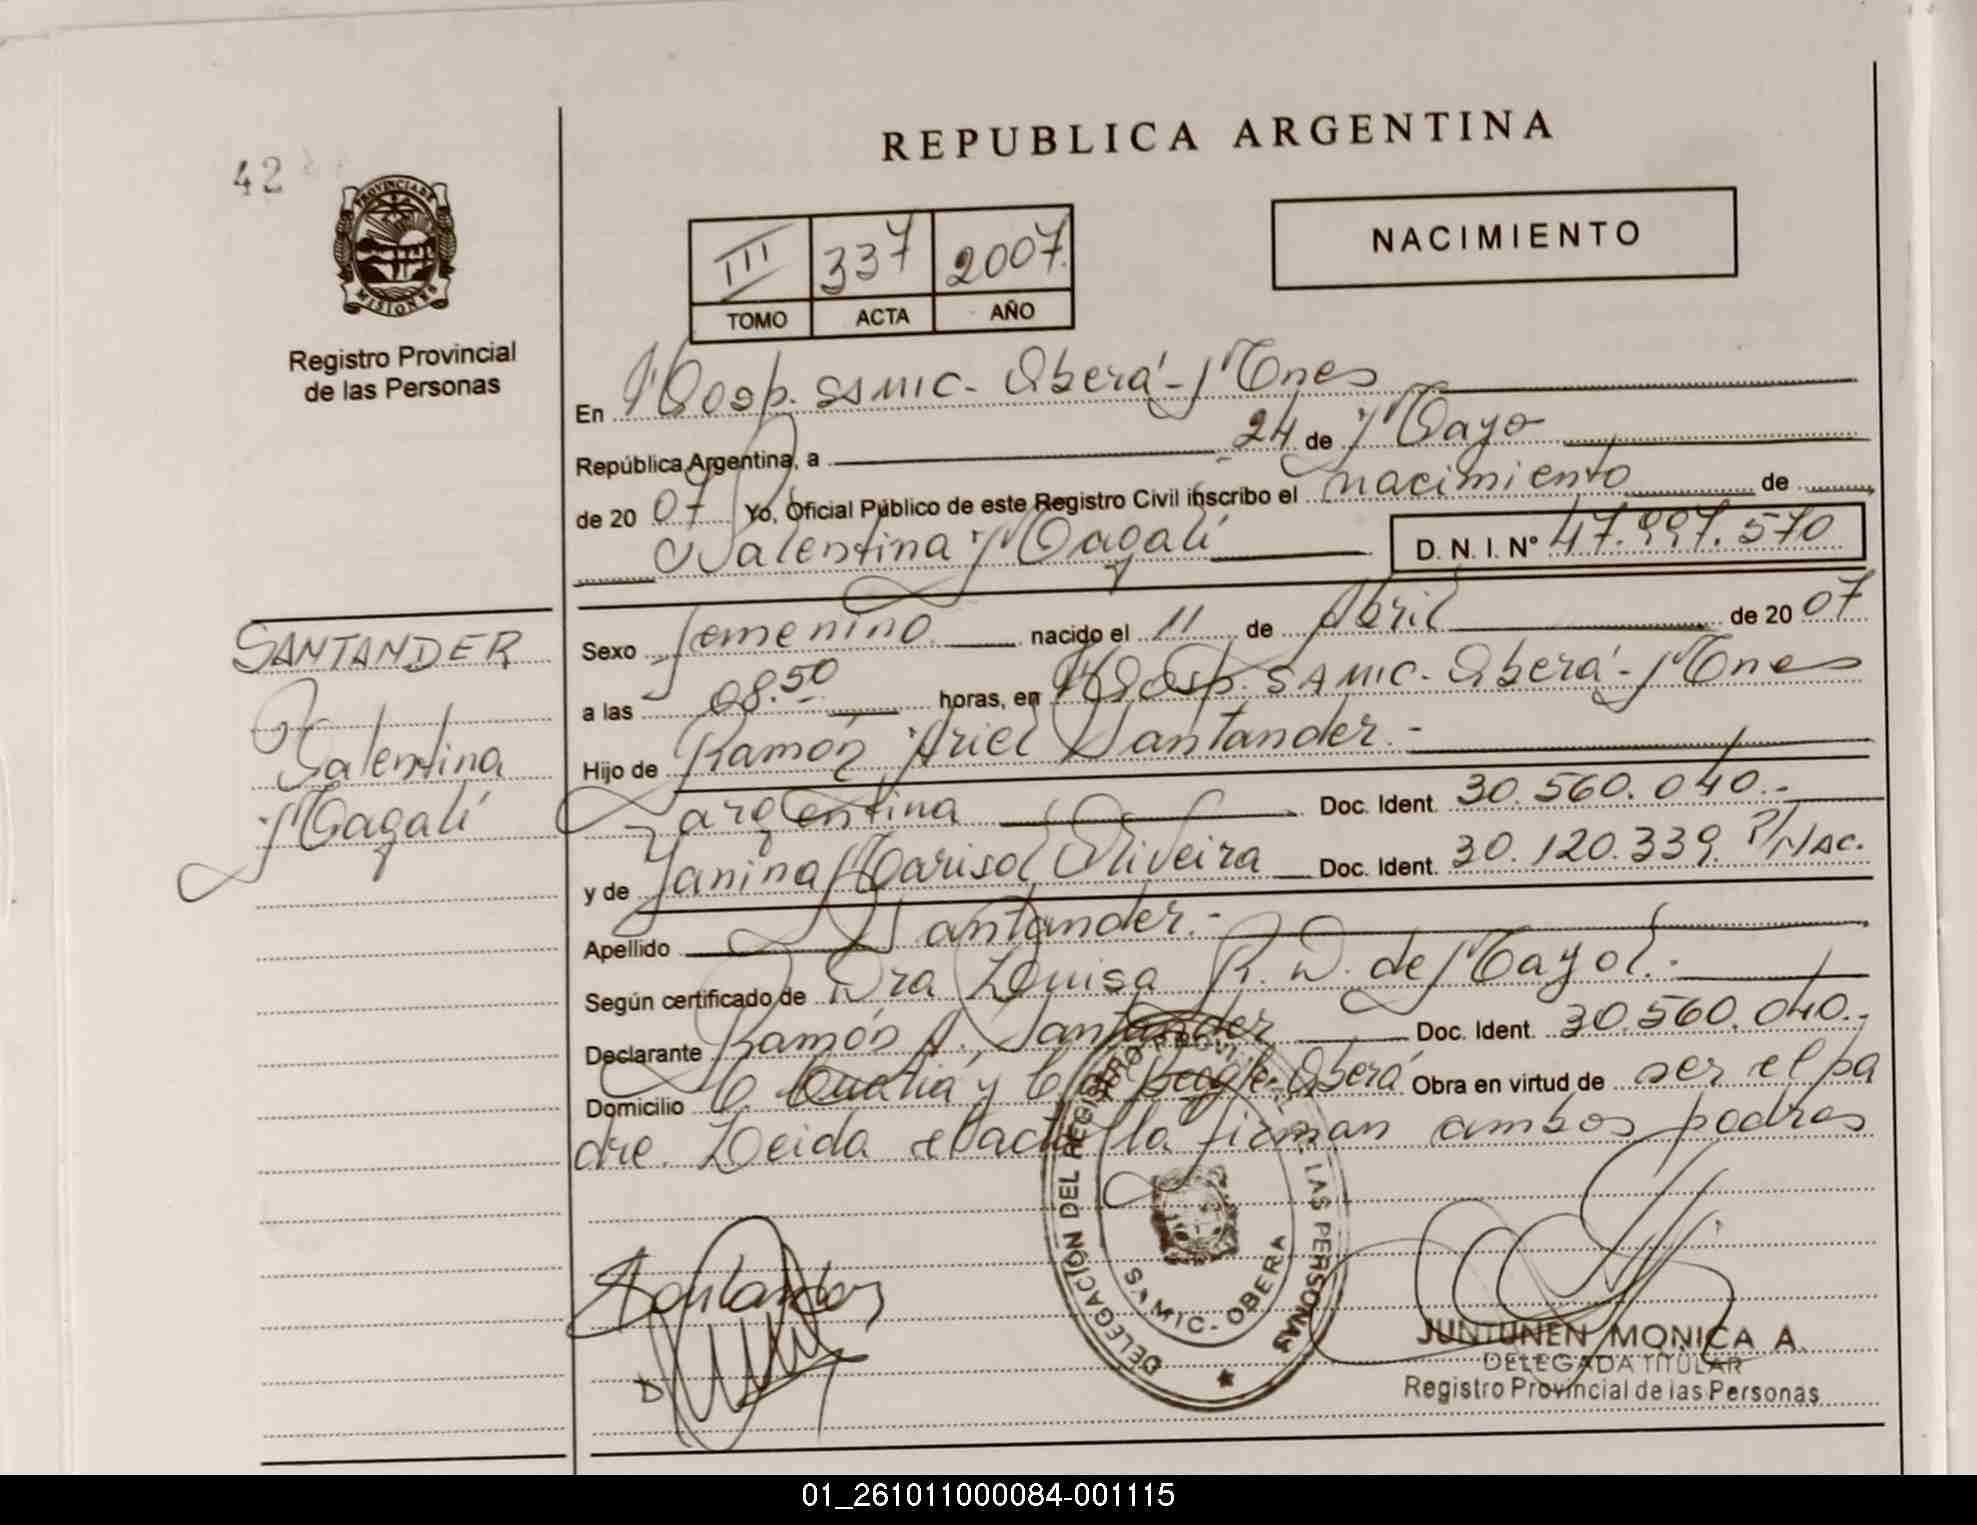 REPUBLICA ARGENTINA
42
PROVINCIA DE
MISIONES
Registro Provincial
de las Personas
III 337 2007.
TOMO ACTA AÑO
NACIMIENTO
En Hosp. SAMIC - Oberá - Mnes
República Argentina, a 24 de Mayo
de 20 07 Yo, Oficial Público de este Registro Civil inscribo el nacimiento de
Valentina Magalí D. N. I. N° 47.997.570
SANTANDER
Valentina
Magalí
Sexo femenino nacido el 11 de Abril de 20 07
a las 08.50 horas, en Hosp. SAMIC - Oberá - Mnes
Hijo de Ramón Ariel Santander.-
argentina Doc. Ident. 30.560.040.-
y de Yanina Marisol Oliveira Doc. Ident. 30.120.339 P/NAC.
Apellido Santander.-
Según certificado de Dra Louisa R. D. de Mayol.-
Declarante Ramón A. Santander Doc. Ident. 30.560.040.-
Domicilio y Beagle - Oberá Obra en virtud de ser el pa
dre. Leida el acta la firman ambos padres
DELEGACIÓN DEL REGISTRO DE LAS PERSONAS
SAMIC - OBERA
JUNTUNEN MONICA A.
DELEGADA TITULAR
Registro Provincial de las Personas
01_261011000084-001115